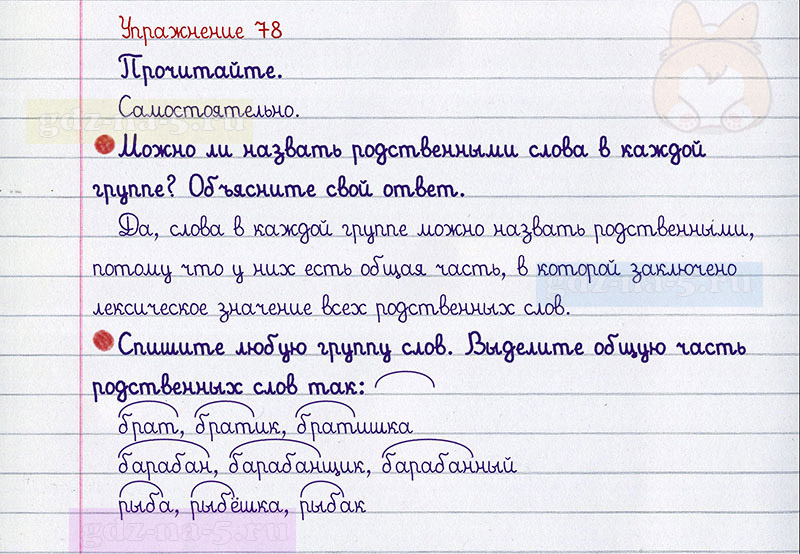 Упражнение 78
Прочитайте.
Самостоятельно.
gdz-na-5.ru
Можно ли назвать родственными слова в каждой
группе? Объясните свой ответ.
Да, слова в каждой группе можно назвать родственными,
потому что у них есть общая часть, в которой заключено
gdz-na-5.ru
лексическое значение всех родственных слов.
Спишите любую группу слов. Выделите общую часть
родственных слов так:
брат, братик, братишка
барабан, барабанщик, барабанный
рыба, рыбёшка, рыбак
gdz-na-5.ru